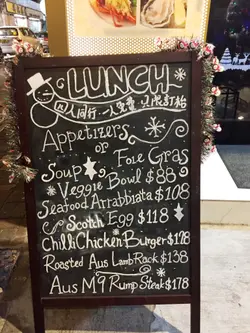 LUNCH
四人同行 一人免費 只限訂枱
Appetizers
or
Soup
Foie Gras
Veggie Bowl $88
Seafood Arrabbiata $108
Scotch Egg $118
Chilli Chicken Burger $128
Roasted Aus Lamb Rack $138
Aus M9 Rump Steak $178